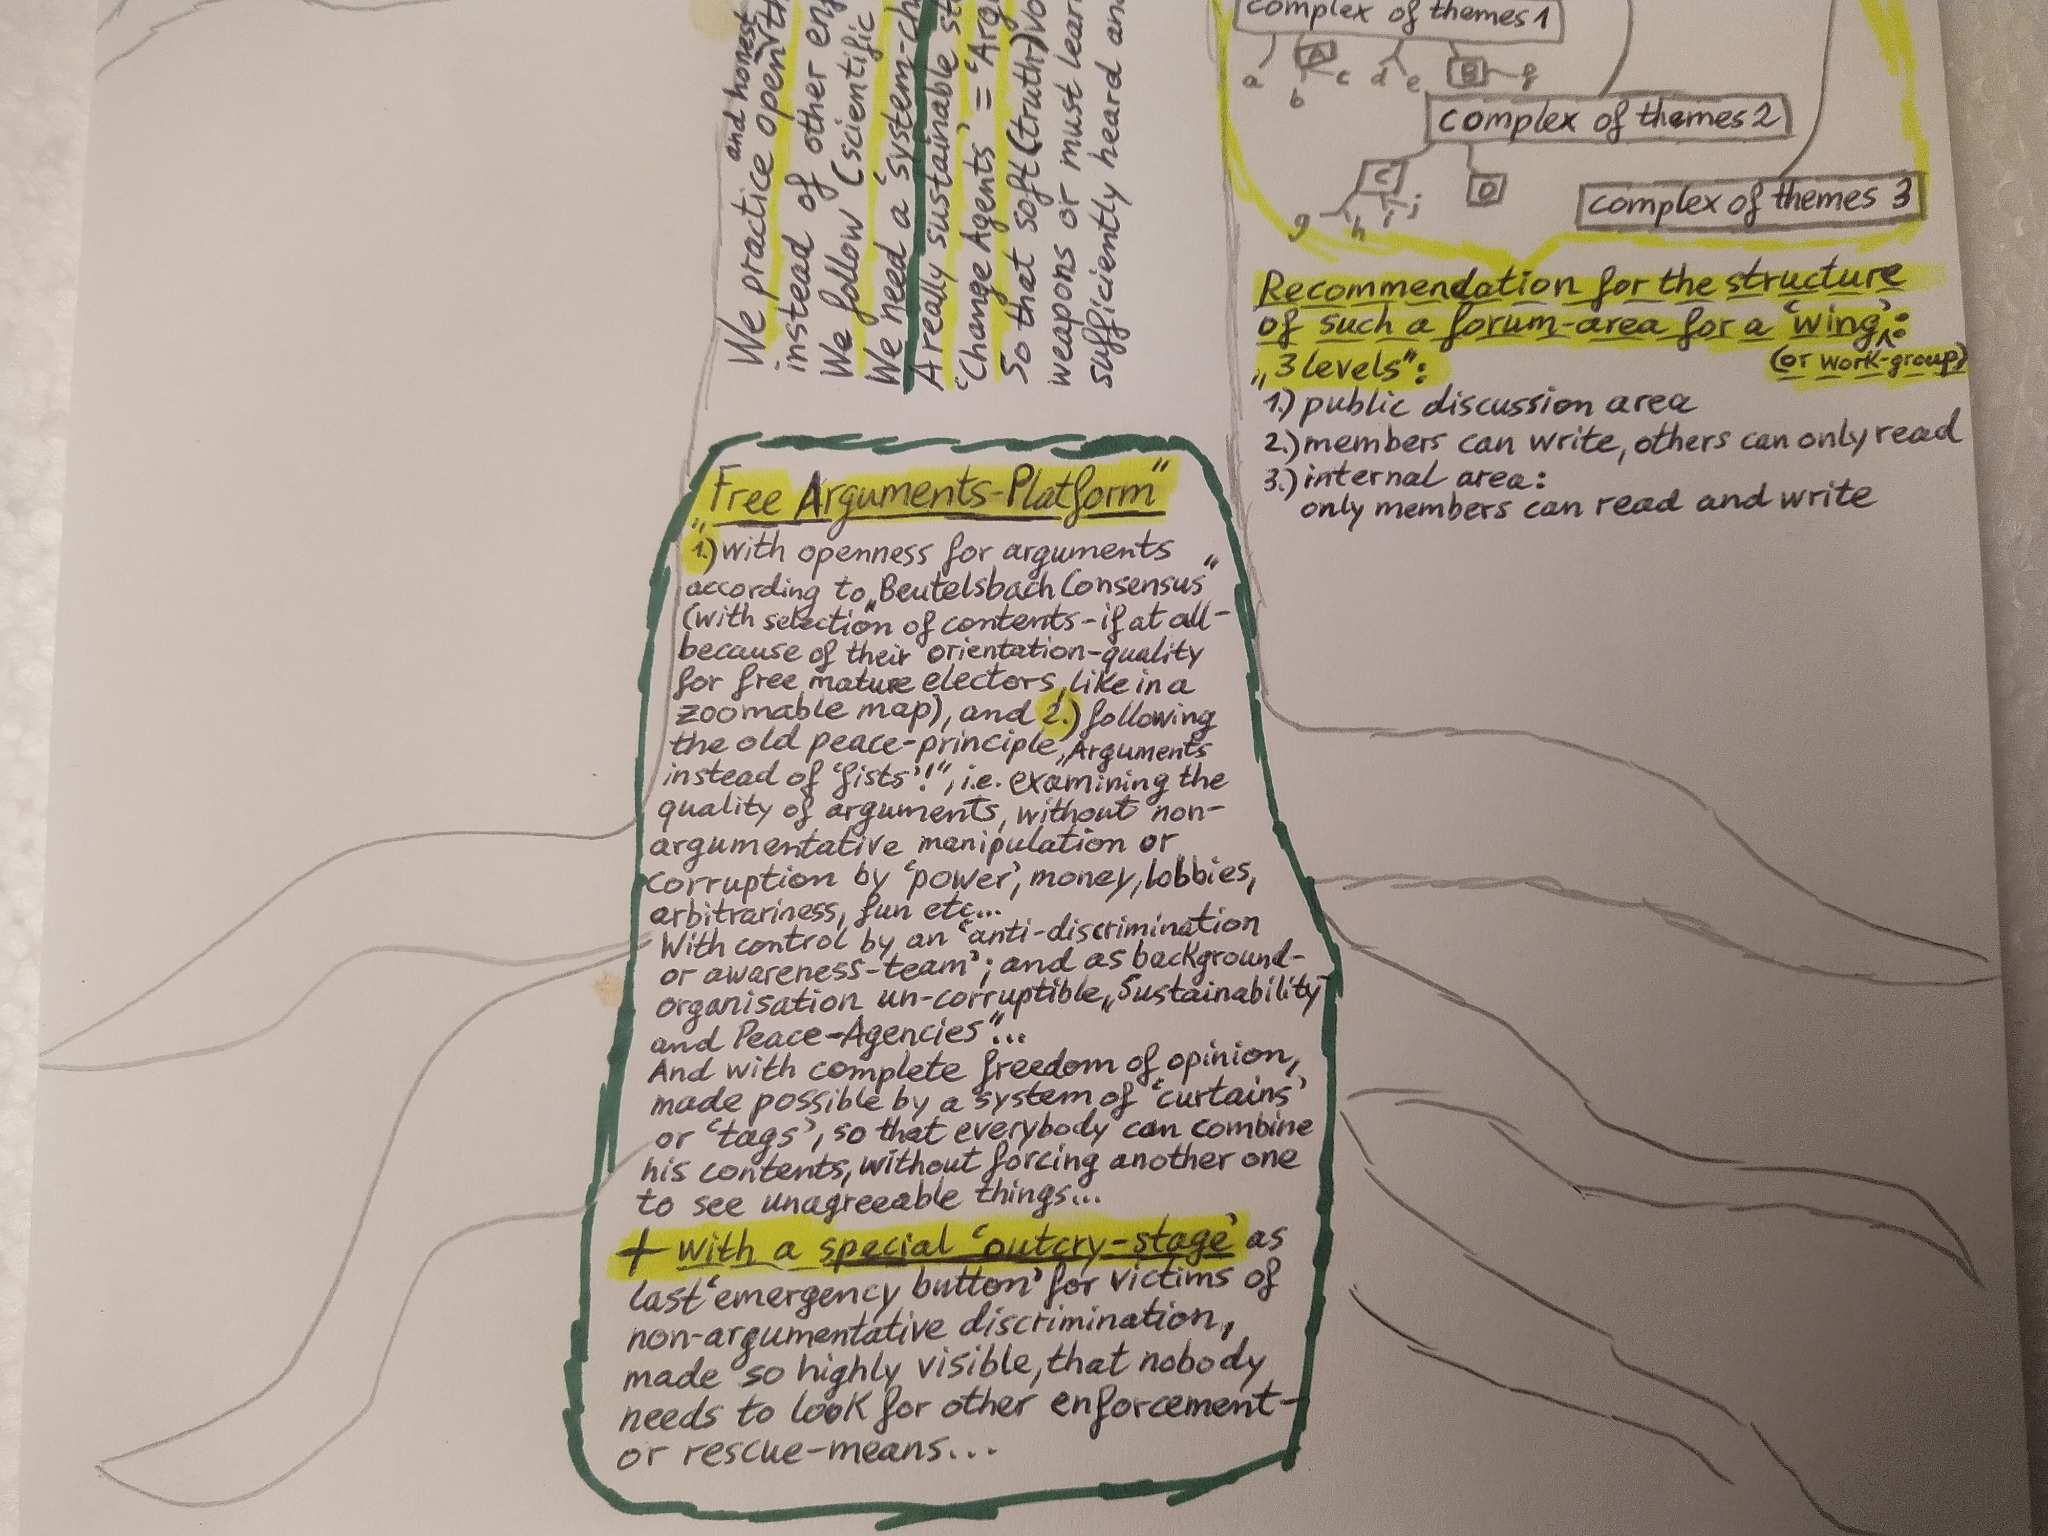 and honest
We practice open
instead of other
We follow (scientific
We need a 'system-ch
A really sustainable
'Change Agents' = 'Arg
So that soft (truth)
weapons or must lear
sufficiently heard an
complex of themes 1
a A c d e B f
b
complex of themes 2
C D
g h i j
complex of themes 3
Recommendation for the structure
of such a forum-area for a 'wing':
(or work-group)
„3 levels":
1.) public discussion area
2.) members can write, others can only read
3.) internal area:
only members can read and write
„Free Arguments-Platform"
1.) with openness for arguments
according to „Beutelsbach Consensus"
(with selection of contents - if at all -
because of their orientation-quality
for free mature electors, like in a
zoomable map), and 2.) following
the old peace-principle „Arguments
instead of 'fists'!", i.e. examining the
quality of arguments, without non-
argumentative manipulation or
corruption by 'power', money, lobbies,
arbitrariness, fun etc...
With control by an 'anti-discrimination
or awareness-team'; and as background-
organisation un-corruptible „Sustainability
and Peace-Agencies"...
And with complete freedom of opinion,
made possible by a system of 'curtains'
or 'tags', so that everybody can combine
his contents, without forcing another one
to see unagreeable things...
+ with a special 'outcry-stage' as
last 'emergency button' for victims of
non-argumentative discrimination,
made so highly visible, that nobody
needs to look for other enforcement-
or rescue-means...